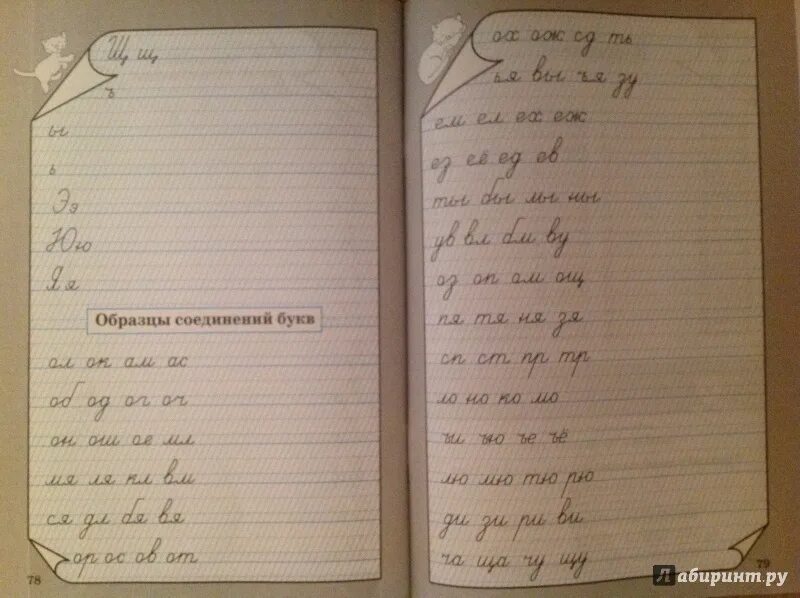 Щ щ
ъ
ы
ь
Э э
Ю ю
Я я
Образцы соединений букв
ол ок ам ас
об од ог оч
он ош ое мл
мя ля кл вм
ся дл бя вя
ор ос ов от
78
ох ож сд ть
ья вы ъя зу
ем ел ех еж
ез её ед ев
ты бы мы ны
ув вл бм ву
оз оп ом ощ
пя тя ня зя
сп ст пр тр
ло но ко мо
ьи ью ъе ъё
лю мю тю рю
ди зи ри ви
ча ща чу щу
79
Лабиринт.ру